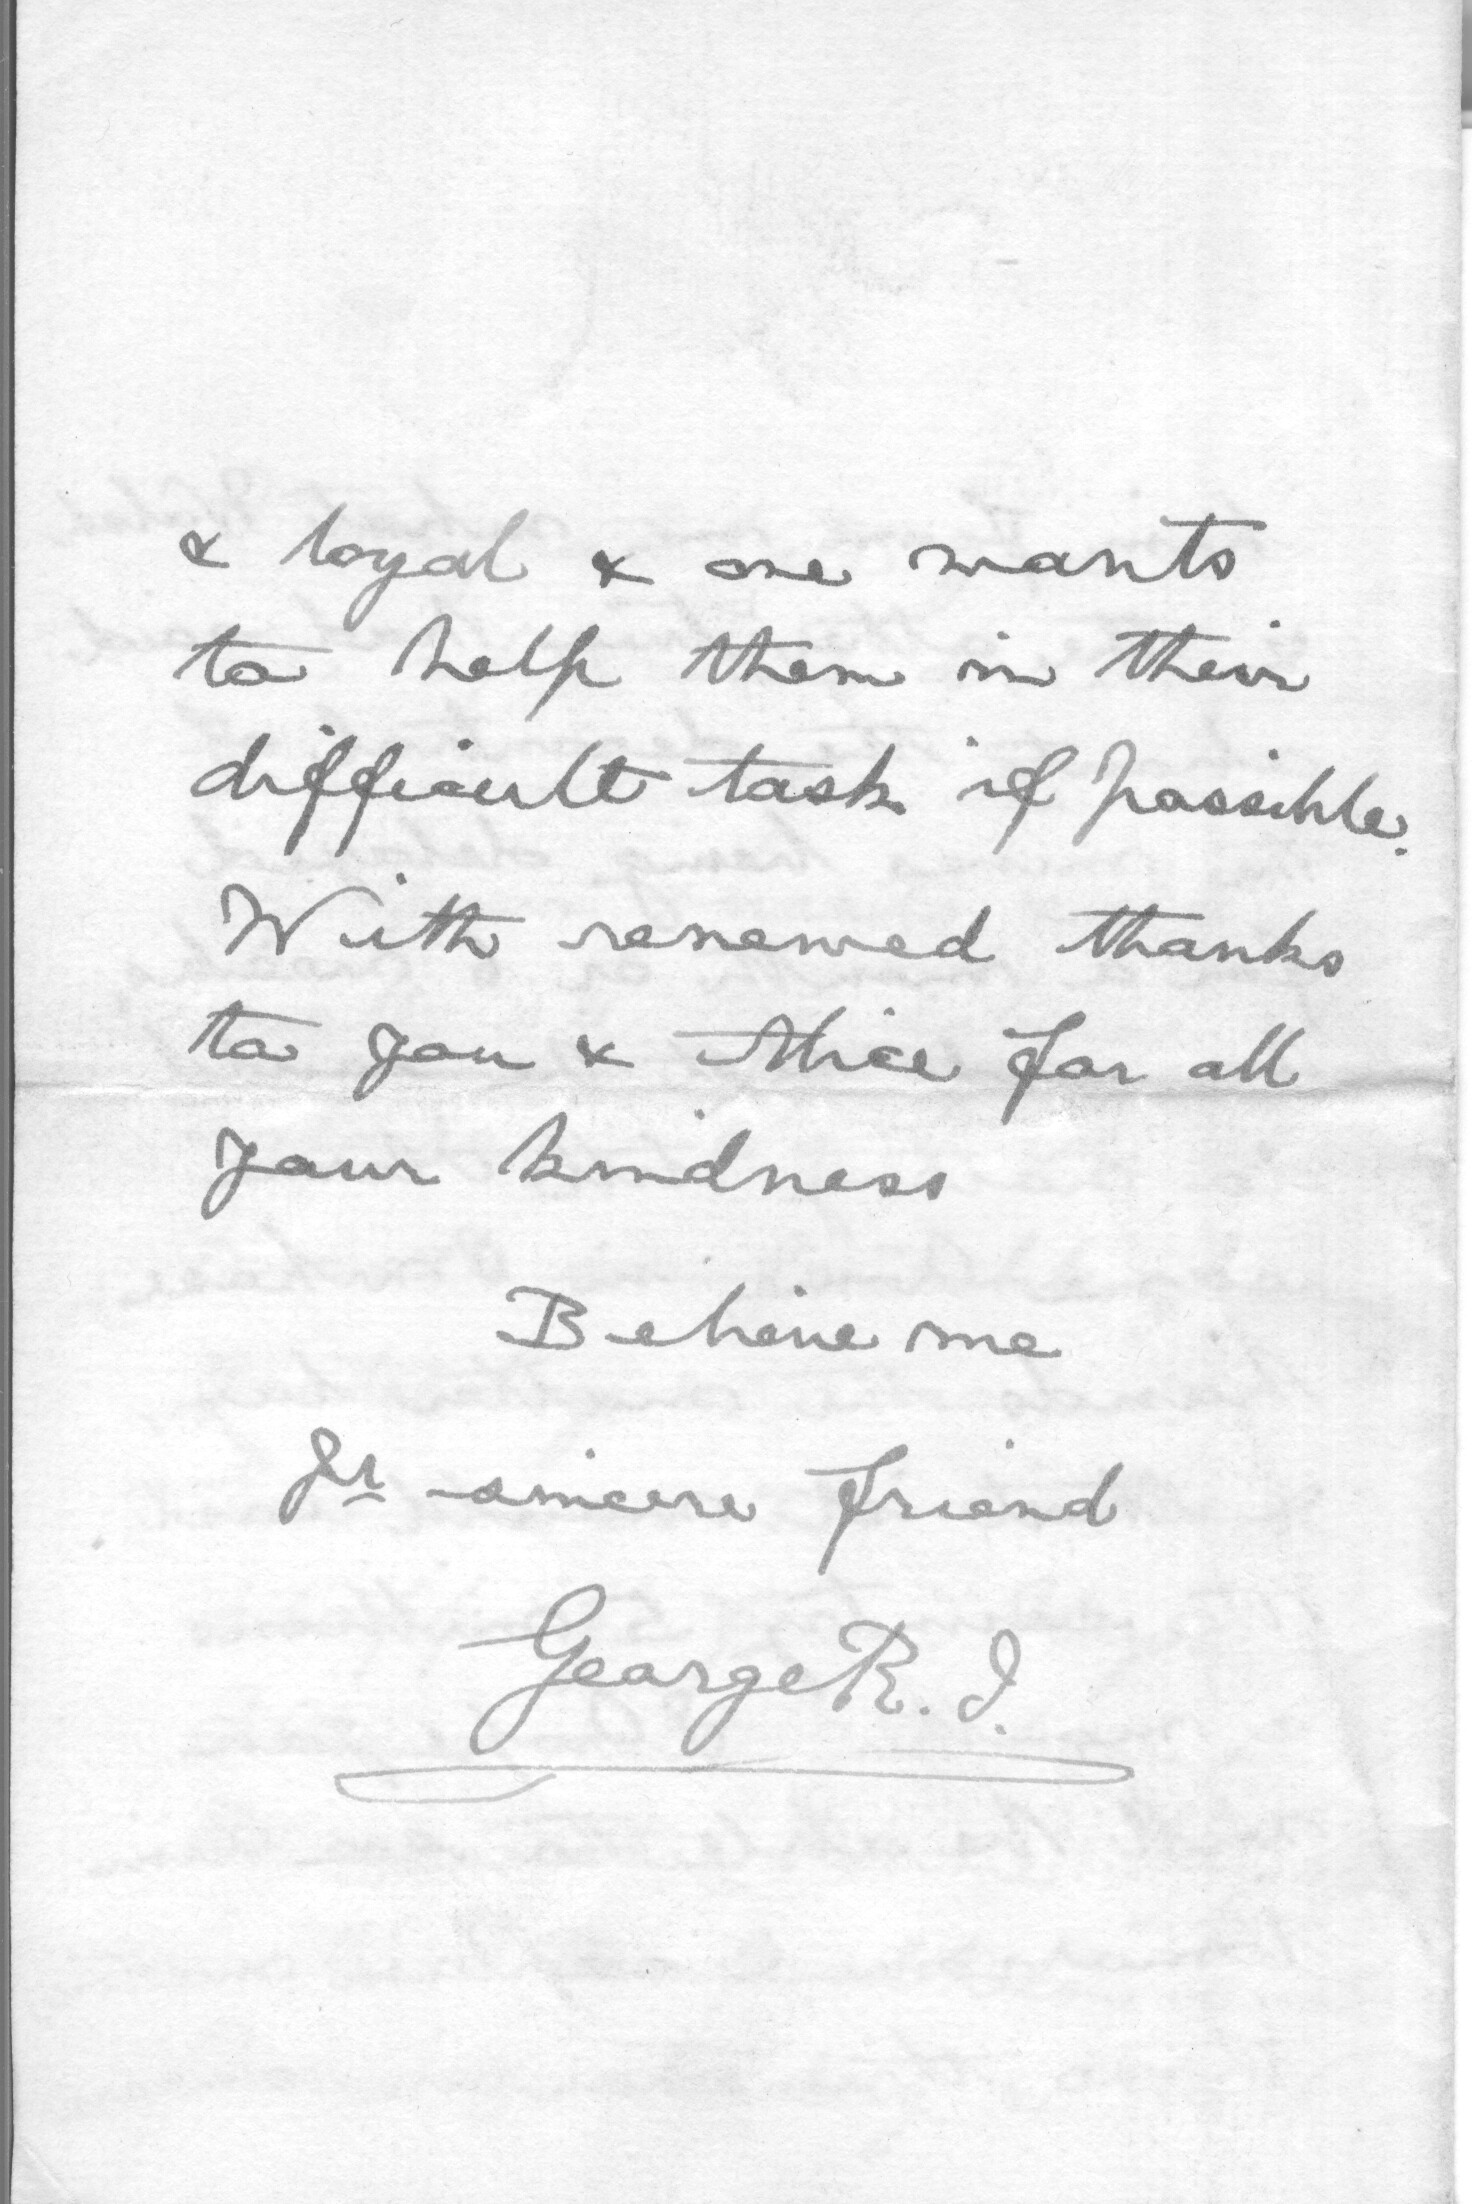 & loyal & one wants
to help them in their
difficult task if possible.
With renewed thanks
to you & Alice for all
your kindness
Believe me
Yr sincere friend
George R. I.